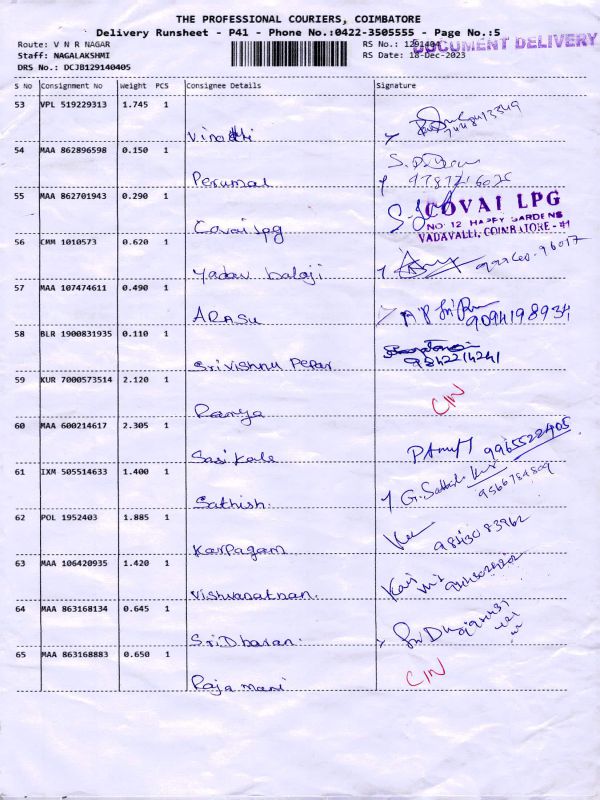 THE PROFESSIONAL COURIERS, COIMBATORE
Delivery Runsheet - P41 - Phone No.:0422-3505555 - Page No.:5
Route: V N R NAGAR
RS No.: 1291404
DOCUMENT DELIVERY
Staff: NAGALAKSHMI
RS Date: 18-Dec-2023
DRS No.: DCJB129140405
S No Consignment No Weight PCS Consignee Details Signature
53 VPL 519229313 1.745 1
54 MAA 862896598 0.150 1
Perumal
55 MAA 862701943 0.290 1
Covai lpg
COVAI LPG
NO: 12 HAPPY GARDENS
VADAVALLI, COIMBATORE - 41
56 CMM 1010573 0.620 1
Yadav balaji
57 MAA 107474611 0.490 1
ARASU 9094198934
58 BLR 1900831935 0.110 1
Srivishnu Peper 9842214241
59 KUR 7000573514 2.120 1
Ramya CIN
60 MAA 600214617 2.305 1
Sasikala 9965522405
61 IXM 505514633 1.400 1
Sathish. G. Sathish Kur 9566784809
62 POL 1952403 1.885 1
Karpagam 9843083962
63 MAA 106420935 1.420 1
Vishwanathan.
64 MAA 863168134 0.645 1
SriDharan.
65 MAA 863168883 0.650 1
Raja mani CIN